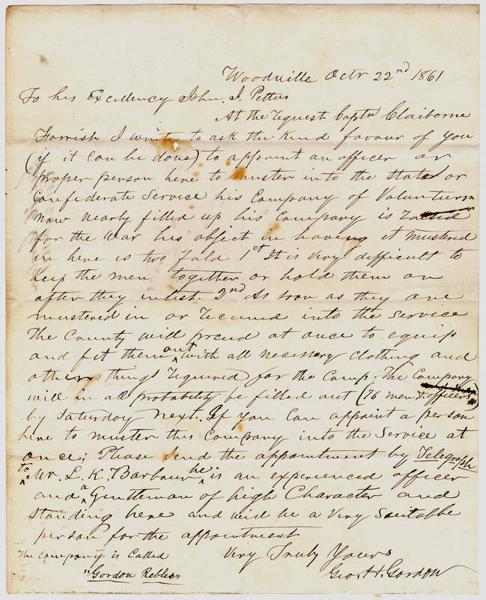 Woodville Octr 22nd 1861
To his Excellency John. J. Pettus
At the request Captn Claiborne
Farrish I write to ask the Kind favour of you
(if it can be done) to appoint an officer or
proper person here to muster into the State or
Confederate Service his Company of Volunteers
now nearly filled up his Company is
for the War his object in having it mustered
in here is two fold 1st It is very difficult to
Keep the men together or hold them on
after they enlist. 2nd As soon as they are
mustered in or received into the service
The County will proceed at once to equip
and fit them out with all necessary clothing and
other things required for the Camp. The Company
will in all probability be filled out (76 men & officers)
by Saturday next. If you Can appoint a person
here to muster this Company into the Service at
once; Please Send the appointment by Telegraph
to Mr. L. K. Barbour he is an experienced officer
and a Gentleman of high Character and
standing here and will be a very Suitable
person for the appointment
The company is Called
"Gordon Rebles"
Very Truly Yours
Geo. H. Gordon